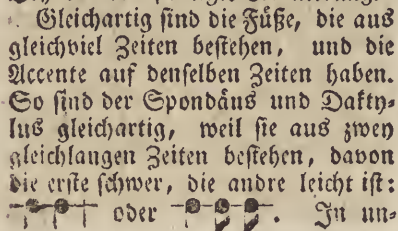 Gleichartig sind die Füße, die aus
gleichviel Zeiten bestehen, und die
Accente auf denselben Zeiten haben.
So sind der Spondäus und Dakty-
lus gleichartig, weil sie aus zwey
gleichlangen Zeiten bestehen, davon
die erste schwer, die andre leicht ist:
oder . In un-